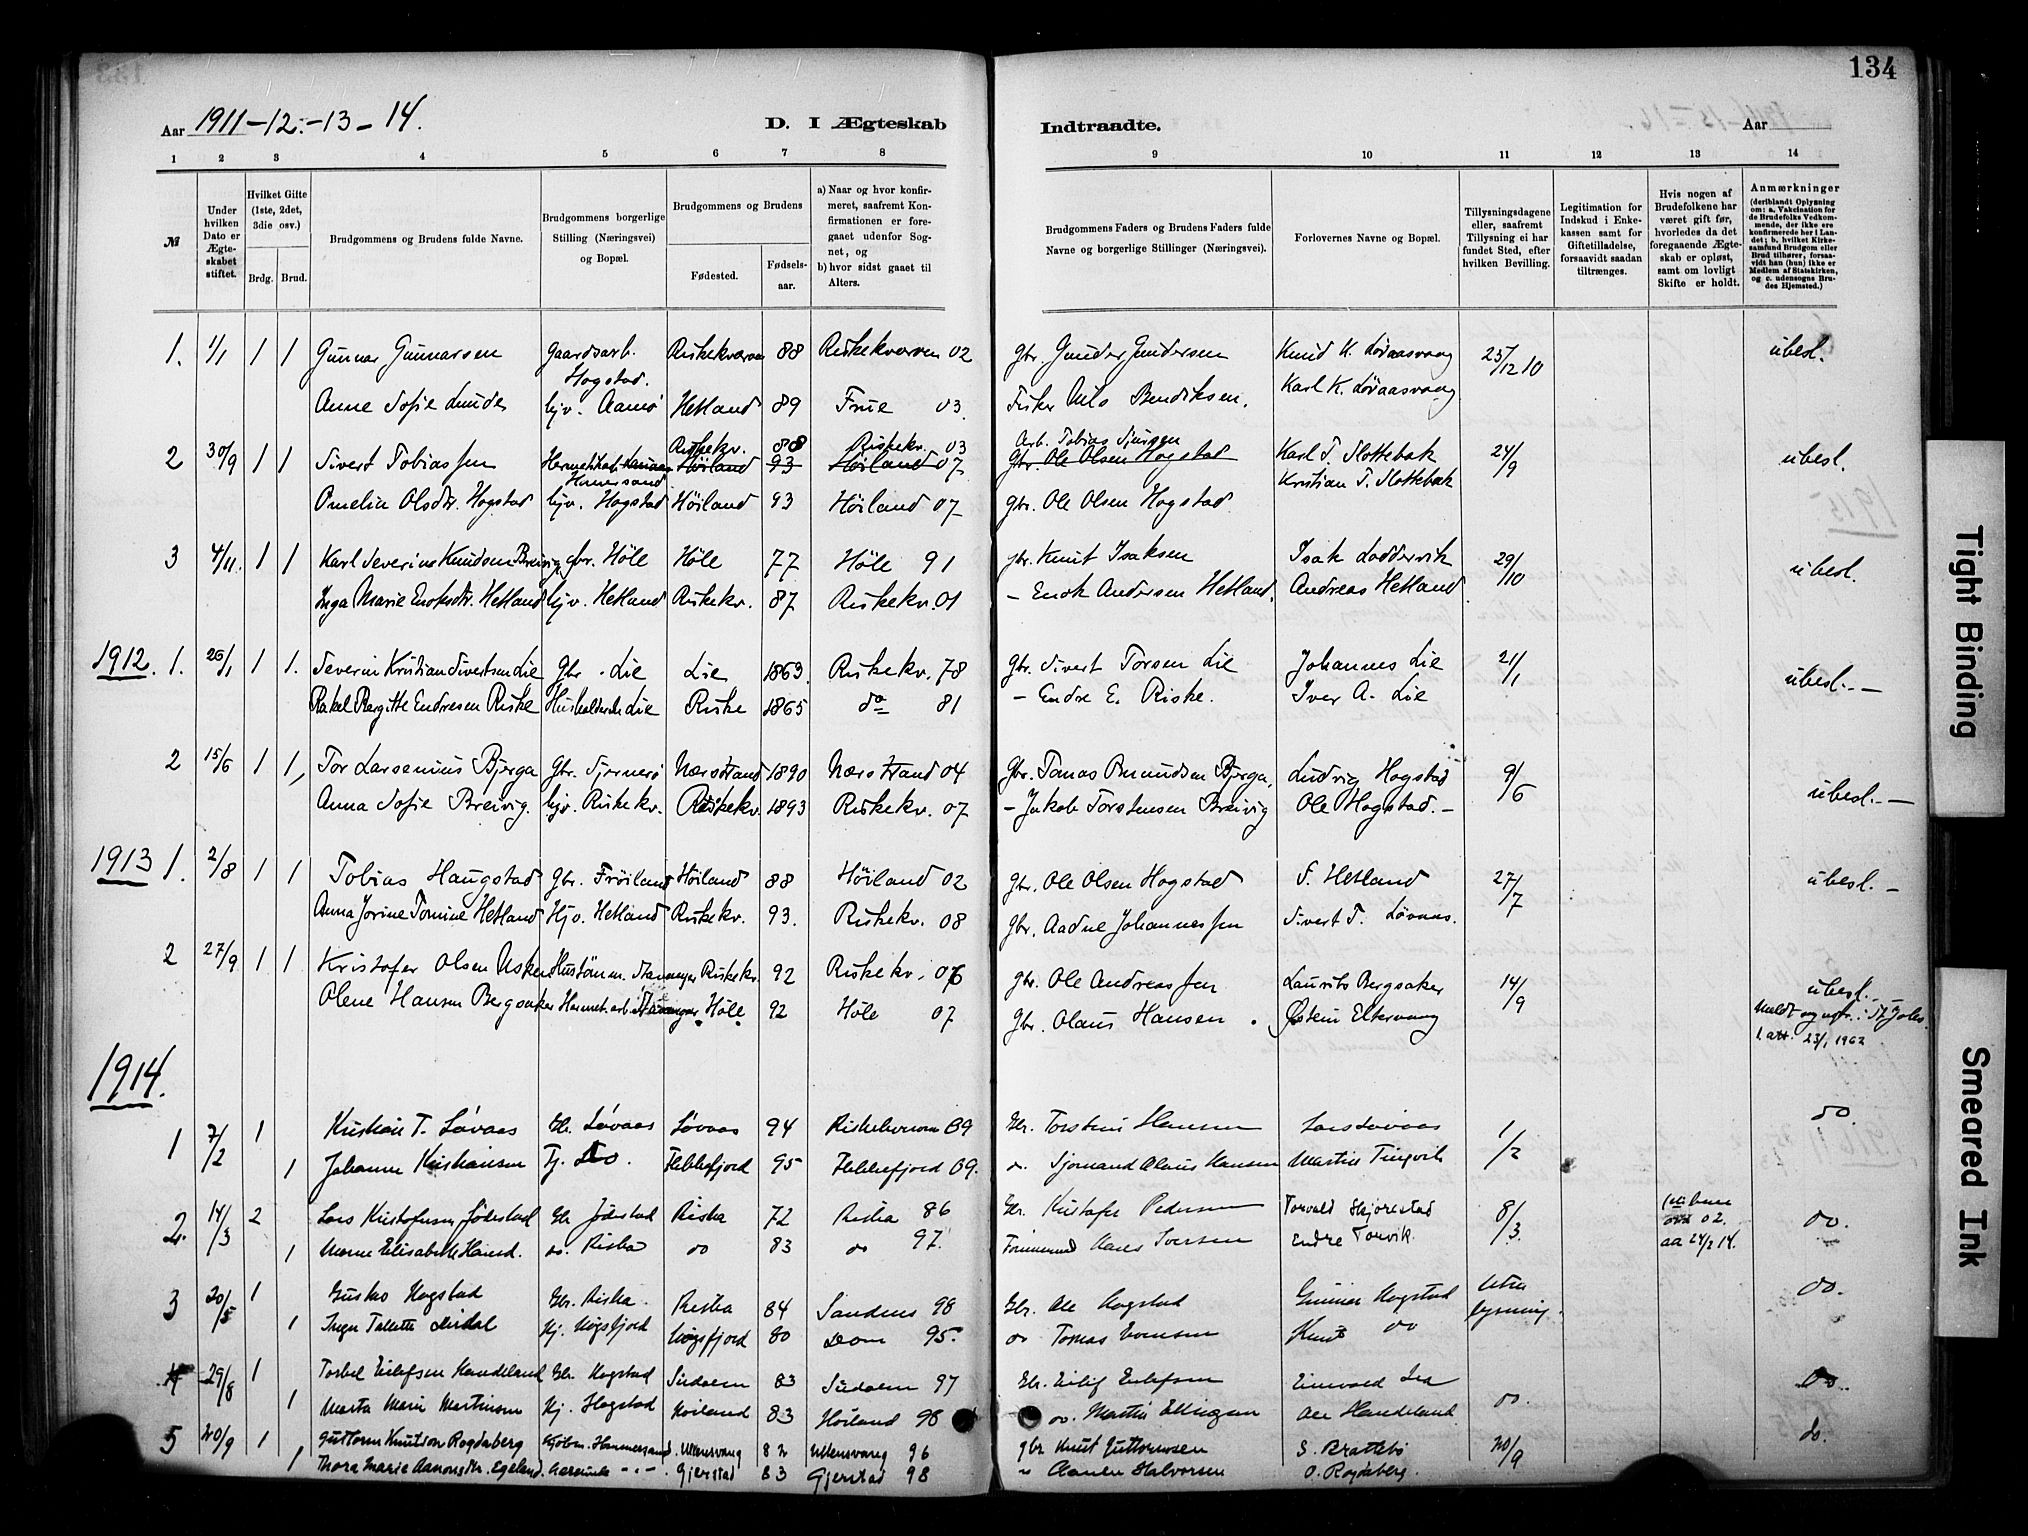 134
Aar 1911-12.-13-14.
D. I Ægteskab
Indtraadte.
Aar
1 2 3 4 5 6 7 8
9 10 11 12 13 14
№
Under hvilken Dato er Ægteskabet stiftet.
Hvilket Gifte (1ste, 2det, 3die osv.)
Brdg. Brud.
Brudgommens og Brudens fulde Navne.
Brudgommens borgerlige Stilling (Næringsvei) og Bopæl.
Brudgommens og Brudens
Fødested.
Fødsels-aar.
a) Naar og hvor konfirmeret, saafremt Konfirmationen er foregaaet udenfor Sognet, og
b) hvor sidst gaaet til Alters.
Brudgommens Faders og Brudens Faders fulde Navne og borgerlige Stillinger (Næringsvei).
Forlovernes Navne og Bopæl.
Tillysningsdagene eller, saafremt Tillysning ei har fundet Sted, efter hvilken Bevilling.
Legitimation for Indskud i Enkekassen samt for Giftetilladelse, forsaavidt saadan tiltrænges.
Hvis nogen af Brudefolkene har været gift før, hvorledes da det foregaaende Ægteskab er opløst, samt om lovligt Skifte er holdt.
Anmærkninger (deriblandt Oplysning om: a. Vakcination for de Brudefolks Vedkommende, der ikke ere konfirmerede her i Landet; b. hvilket Kirkesamfund Brudgom eller Brud tilhører, forsaavidt han (hun) ikke er Medlem af Statskirken, og c. udensogns Brudes Hjemsted.)
1. 1/1 1 1 Gunnar Gunnarsen Gaardsarb. Hogstad. Riskekværven 88 Riskekværven 02 Gbr. Gunder Gundersen Knud K. Løvaasvaag 25/12 10 ubesl.
Anne Sofie Lunde hjv. Aamø Hetland 89 Frue 03. Fisker Nils Bendiksen. Karl K. Løvaasvaag
2 30/9 1 1 Sivert Tobiassen Hammersand Riskekv. 88 Riskekv. 03 Arb. Tobias Karl T. Slottebak 24/9 ubesl.
Høiland 93 Høiland 07. Gbr. Ole Olsen Hogstad
Omelia Olsdtr. Hogstad hjv. Hogstad Høiland 93 Høiland 07 gbr. Ole Olsen Hogstad Kristian T. Slottebak
3 4/11. 1 1 Karl Severin Knudsen Breivig gbr. Høle Høle 77 Høle 91 gbr. Knut Isaksen Isak Loddervik 29/10 ubesl.
Inga Marie Enoksdtr. Hetland hjv. Hetland Riskekv. 87 Riskekv. 01 - Enok Andersen Hetland. Andreas Hetland
1912. 1. 26/1 1 1. Severin Kristian Sivertsen Lie Gbr. Lie Lie 1863. Riskekv. 78 Gbr. Sivert Torsen Lie Johannes Lie 21/1 ubesl. -
Rakel Bergitte Endresen Riske Lie Riske 1865 do 81 - Endre E. Riske. Iver A. Lie
2 15/6 1 1, Tor Larsenius Bjerga Gbr. Sjernerø Nærstrand 1890 Nærstrand 04 Gbr. Tomas Bjerga, Ludvig Hogstad 9/6 ubesl. -
Anna Sofie Breivig. hjv. Riskekv. Riskekv. 1893 Riskekv. 07 - Jakob Torstensen Breivig Ole Hogstad. -
1913 1. 2/8 1 1 Tobias Haugstad Gbr. Frøiland Høiland 88 Høiland 02 gbr. Ole Olsen Hogstad S. Hetland 27/7 ubesl. -
Anna Jorine Tomine Hetland Hjv. Hetland Riskekv. 93. Riskekv. 08 Gbr. Aadne Johannessen Sivert T. Løvaas.
2 27/9 1 1 Kristofer Olsen Usken Stavanger Riskekv. 92 Riskekv. 06 gbr. Ole Andreassen Laurits Bergsaker 14/9 ubesl.
Olene Hansen Bergsaker Hermet. arb. Stavanger Høle. 92 Høle 07 Gbr. Olaus Hansen. Østein Eltervaag
Meldt
23/1 1962
1914.
1 7/2 1 Kristian T. Løvaas Gbr. Løvaas Løvaas 94 Riskekværven 09 Gbr. Torstein Hansen Lars Løvaas 1/2 do.
1 Johanne Kristiansen Tj. do. Flekkefjord 95 Flekkefjord 09. do. Sjømand Olaus Hansen Martin Tingvik
2. 14/3 2 Lars Kristofersen Jødestad Gbr. Jødestad Riska 72 Riska 86 Gbr. Kristofer Pedersen Torvald Hjorestad 8/3. 02. do.
1 Marne Elisabeth Hansd. do. Riska do 83 do 97. Hans Iversen Endre Torvik. aa 24/2 14.
3 20/5 1 Gustav Hogstad Gbr. Riska Riska 84 Sandnes 98 Gbr. Ole Hogstad Gunnar Hogstad Uten lysning. do.
1 Inger Tallette Dirdal Hj. Høgsfjord Høgsfjord 80 Dom 95. do Tomas Knut do
4 29/8 1 Torbel Eilefsen Handeland Gbr. Hogstad Sirdalen 83 Sirdalen 97 Gbr. Eilif Eilefsen do. do.
1 Marta Marie Martinsen Hj. Hogstad Høiland 83 Høiland 98 do. Martin Ellingsen Ole Handeland
5 20/9 1 Guttorm Knutson Rogdaberg Kjøbm. Hammersand Ullensvang 82 Ullensvang 96 gbr Knut Guttormsen S. Brattebø 20/9 do.
1 Thora Marie Aanonsdtr. Egeland. Gjerstad 83 Gjerstad 98 " Aanen Halvorsen O. Rogdaberg.
Tight Binding
Smeared Ink